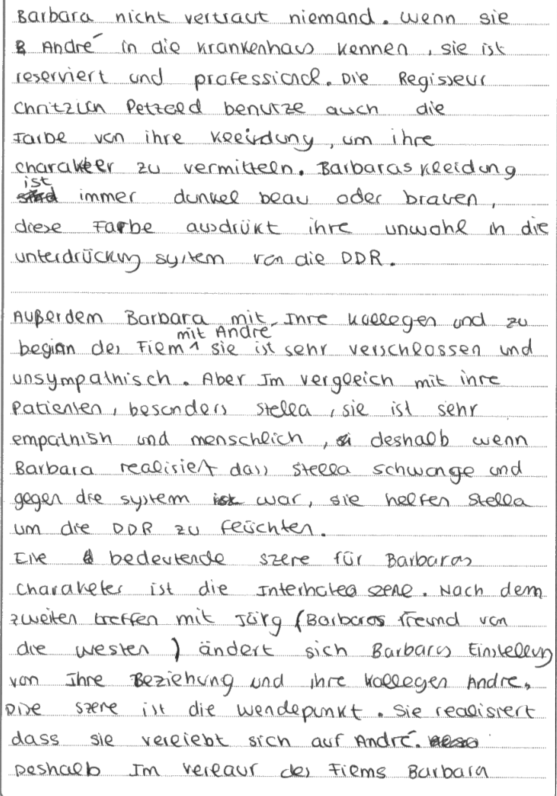 Barbara nicht vertraut niemand. Wenn sie
André in die Krankenhaus kennen, sie ist
reserviert und professional. Die Regisseur
Chritzian Petzeld benutze auch die
Farbe von ihre Kleidung, um ihre
charakter zu vermitteln. Barbaras Kleidung
ist immer dunkel beau oder braven,
diese Farbe ausdrükt ihre unwohl in die
unterdrückung system von die DDR.
Außerdem Barbara mit Ihre Kollegen und zu
beginn des Films mit André sie ist sehr verschlossen und
unsympathisch. Aber Im vergleich mit ihre
Patienten, besonders Stella, sie ist sehr
empathish und menschlich, deshalb wenn
Barbara realisiert dass Stella schwange und
gegen die system war, sie helfen Stella
um die DDR zu feüchten.
Eine bedeutende szene für Barbaras
Charakter ist die Interhotel szene. Nach dem
zweiten treffen mit Jörg (Barbaras freund von
die westen) ändert sich Barbaras Einstellung
von Ihre Beziehung und ihre Kollegen Andre.
Dise szene ist die wendepunkt. Sie realisiert
dass sie verliebt sich auf André.
Deshalb Im verlauf des Films Barbara